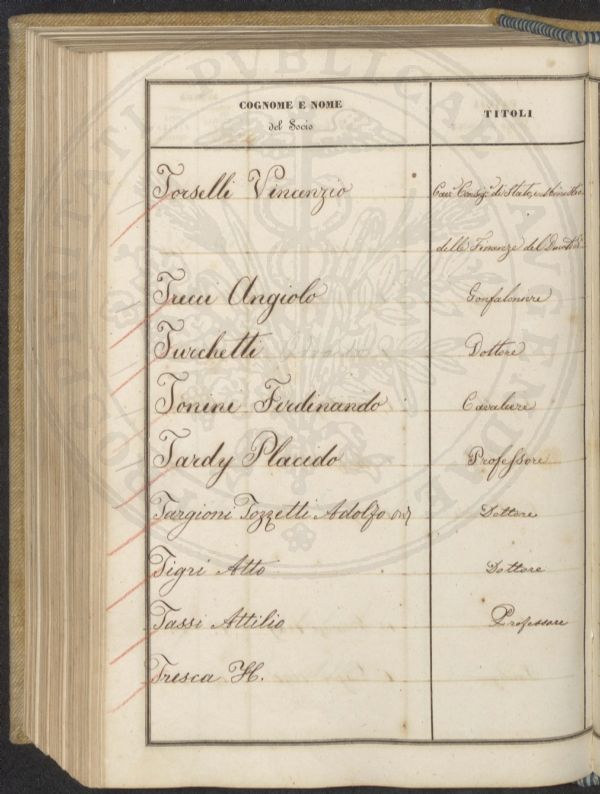 COGNOME E NOME
del Socio
TITOLI
Torselli Vincenzio
Cav.e Consig.e di Stato,
delle Finanze del
Tucci Angiolo Gonfaloniere
Turchetti Dottore
Tonini Ferdinando Cavaliere
Tardy Placido Professore
Targioni Tozzetti Adolfo Dottore
Tigri Atto Dottore
Tassi Attilio Professore
Tresca H.